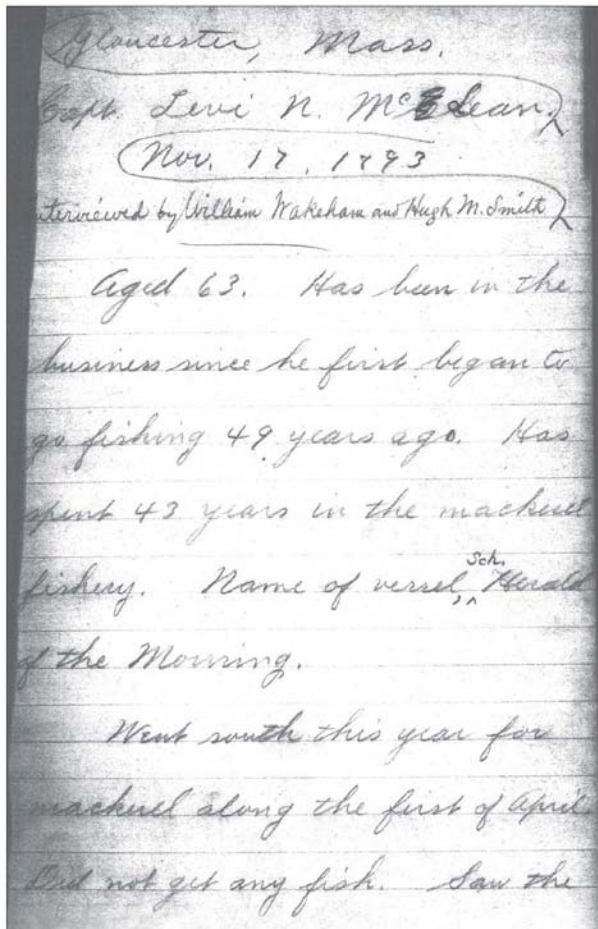 Gloucester, Mass.
Capt. Levi N. McLean.
Nov. 17, 1893
nterviewed by William Wakeham and Hugh M. Smith
Aged 63. Has been in the
business since he first began to
go fishing 49 years ago. Has
spent 43 years in the mackerel
fishery. Name of vessel, Sch. Herald
of the Morning.
Went south this year for
mackerel along the first of April.
Did not get any fish. Saw the